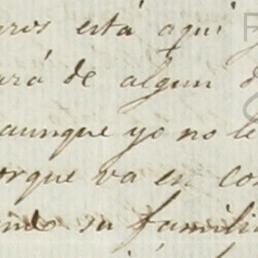 está aquí
ará de algun
aunque yo no le
orque va en con
su familia